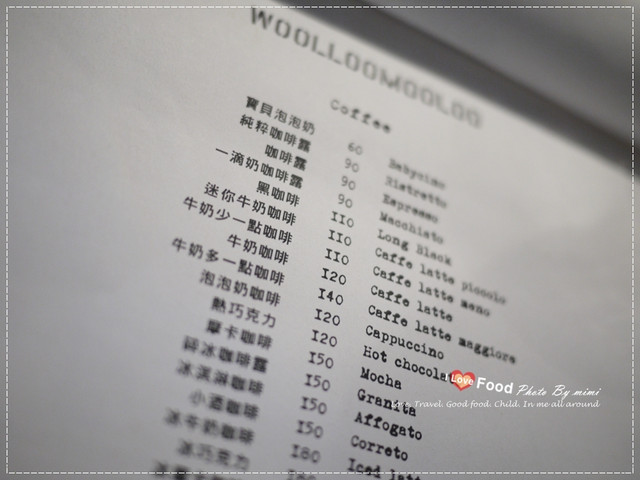 WOOLLOOMOOLOO
Coffee
寶貝泡泡奶 60 Babycino
純粹咖啡露 90 Ristretto
咖啡露 90 Espresso
一滴奶咖啡露 90 Macchiato
黑咖啡 110 Long Black
迷你牛奶咖啡 110 Caffe latte piccolo
牛奶少一點咖啡 110 Caffe latte meno
牛奶咖啡 120 Caffe latte
牛奶多一點咖啡 140 Caffe latte maggiore
泡泡奶咖啡 120 Cappuccino
熱巧克力 120 Hot chocolat
摩卡咖啡 150 Mocha
碎冰咖啡露 150 Granita
冰淇淋咖啡 150 Affogato
小酒咖啡 150 Correto
冰牛奶咖啡 180 Iced latt
冰巧克力
I Love Food Photo By mimi
Love. Travel. Good food. Child. In me all around